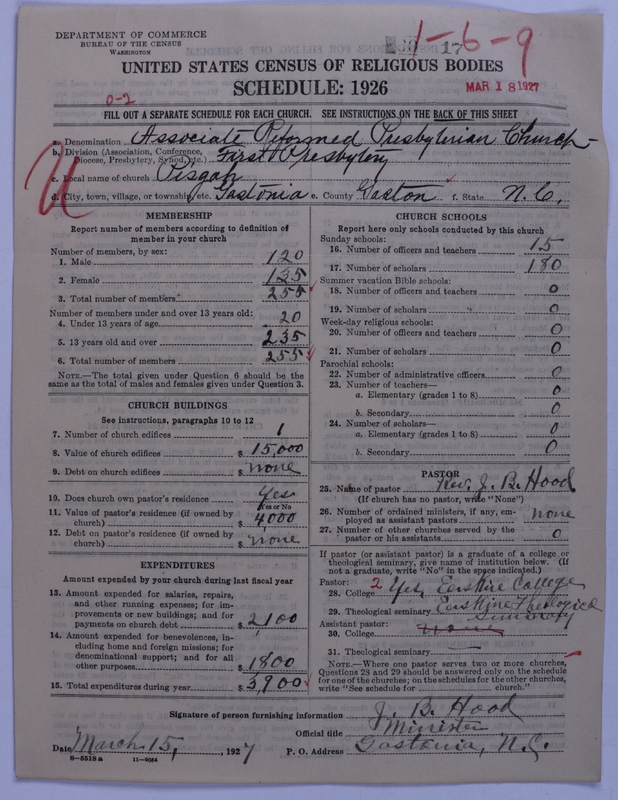 DEPARTMENT OF COMMERCE
BUREAU OF THE CENSUS
WASHINGTON
17
1-6-9
UNITED STATES CENSUS OF RELIGIOUS BODIES
SCHEDULE: 1926
MAR 18 1927
0-2
FILL OUT A SEPARATE SCHEDULE FOR EACH CHURCH. SEE INSTRUCTIONS ON THE BACK OF THIS SHEET
a. Denomination Associate Reformed Presbyterian Church
b. Division (Association, Conference, Diocese, Presbytery, Synod, etc.) First Presbytery
c. Local name of church Pisgah
d. City, town, village, or township, etc. Gastonia e. County Gaston f. State N.C.
MEMBERSHIP
Report number of members according to definition of
member in your church
Number of members, by sex:
1. Male 120
2. Female 135
3. Total number of members 255
Number of members under and over 13 years old:
4. Under 13 years of age 20
5. 13 years old and over 235
6. Total number of members 255
NOTE.—The total given under Question 6 should be
same as the total of males and females given under Question 3.
CHURCH BUILDINGS
See instructions, paragraphs 10 to 12
7. Number of church edifices 1
8. Value of church edifices $ 15,000
9. Debt on church edifices $ none
10. Does church own pastor's residence Yes
Yes or No
11. Value of pastor's residence (if owned by
church) $ 4000
12. Debt on pastor's residence (if owned by
church) $ none
EXPENDITURES
Amount expended by your church during last fiscal year
13. Amount expended for salaries, repairs,
and other running expenses; for im-
provements or new buildings; and for
payments on church debt $ 2100
14. Amount expended for benevolences, in-
cluding home and foreign missions; for
denominational support; and for all
other purposes $ 1800
15. Total expenditures during year $ 3900
CHURCH SCHOOLS
Report here only schools conducted by this church
Sunday schools:
16. Number of officers and teachers 15
17. Number of scholars 180
Summer vacation Bible schools:
18. Number of officers and teachers 0
19. Number of scholars 0
Week-day religious schools:
20. Number of officers and teachers 0
21. Number of scholars 0
Parochial schools:
22. Number of administrative officers 0
23. Number of teachers—
a. Elementary (grades 1 to 8) 0
b. Secondary 0
24. Number of scholars—
a. Elementary (grades 1 to 8) 0
b. Secondary 0
PASTOR
25. Name of pastor Rev. J. B. Hood
(If church has no pastor, write "None")
26. Number of ordained ministers, if any, em-
ployed as assistant pastors none
27. Number of other churches served by the
pastor or his assistants 0
If pastor (or assistant pastor) is a graduate of a college or
theological seminary, give name of institution below. (If
not a graduate, write "No" in the space indicated.)
Pastor: 2
28. College Yes, Erskine College
29. Theological seminary Erskine Theological Seminary
Assistant pastor:
30. College None
31. Theological seminary
NOTE.—Where one pastor serves two or more churches,
Questions 28 and 29 should be answered only on the schedule
for one of the churches; on the schedules for the other churches,
write "See schedule for church."
Signature of person furnishing information J. B. Hood
Official title Minister
Date March 15, 1927 P. O. Address Gastonia, N.C.
8-5518 a 11-9054